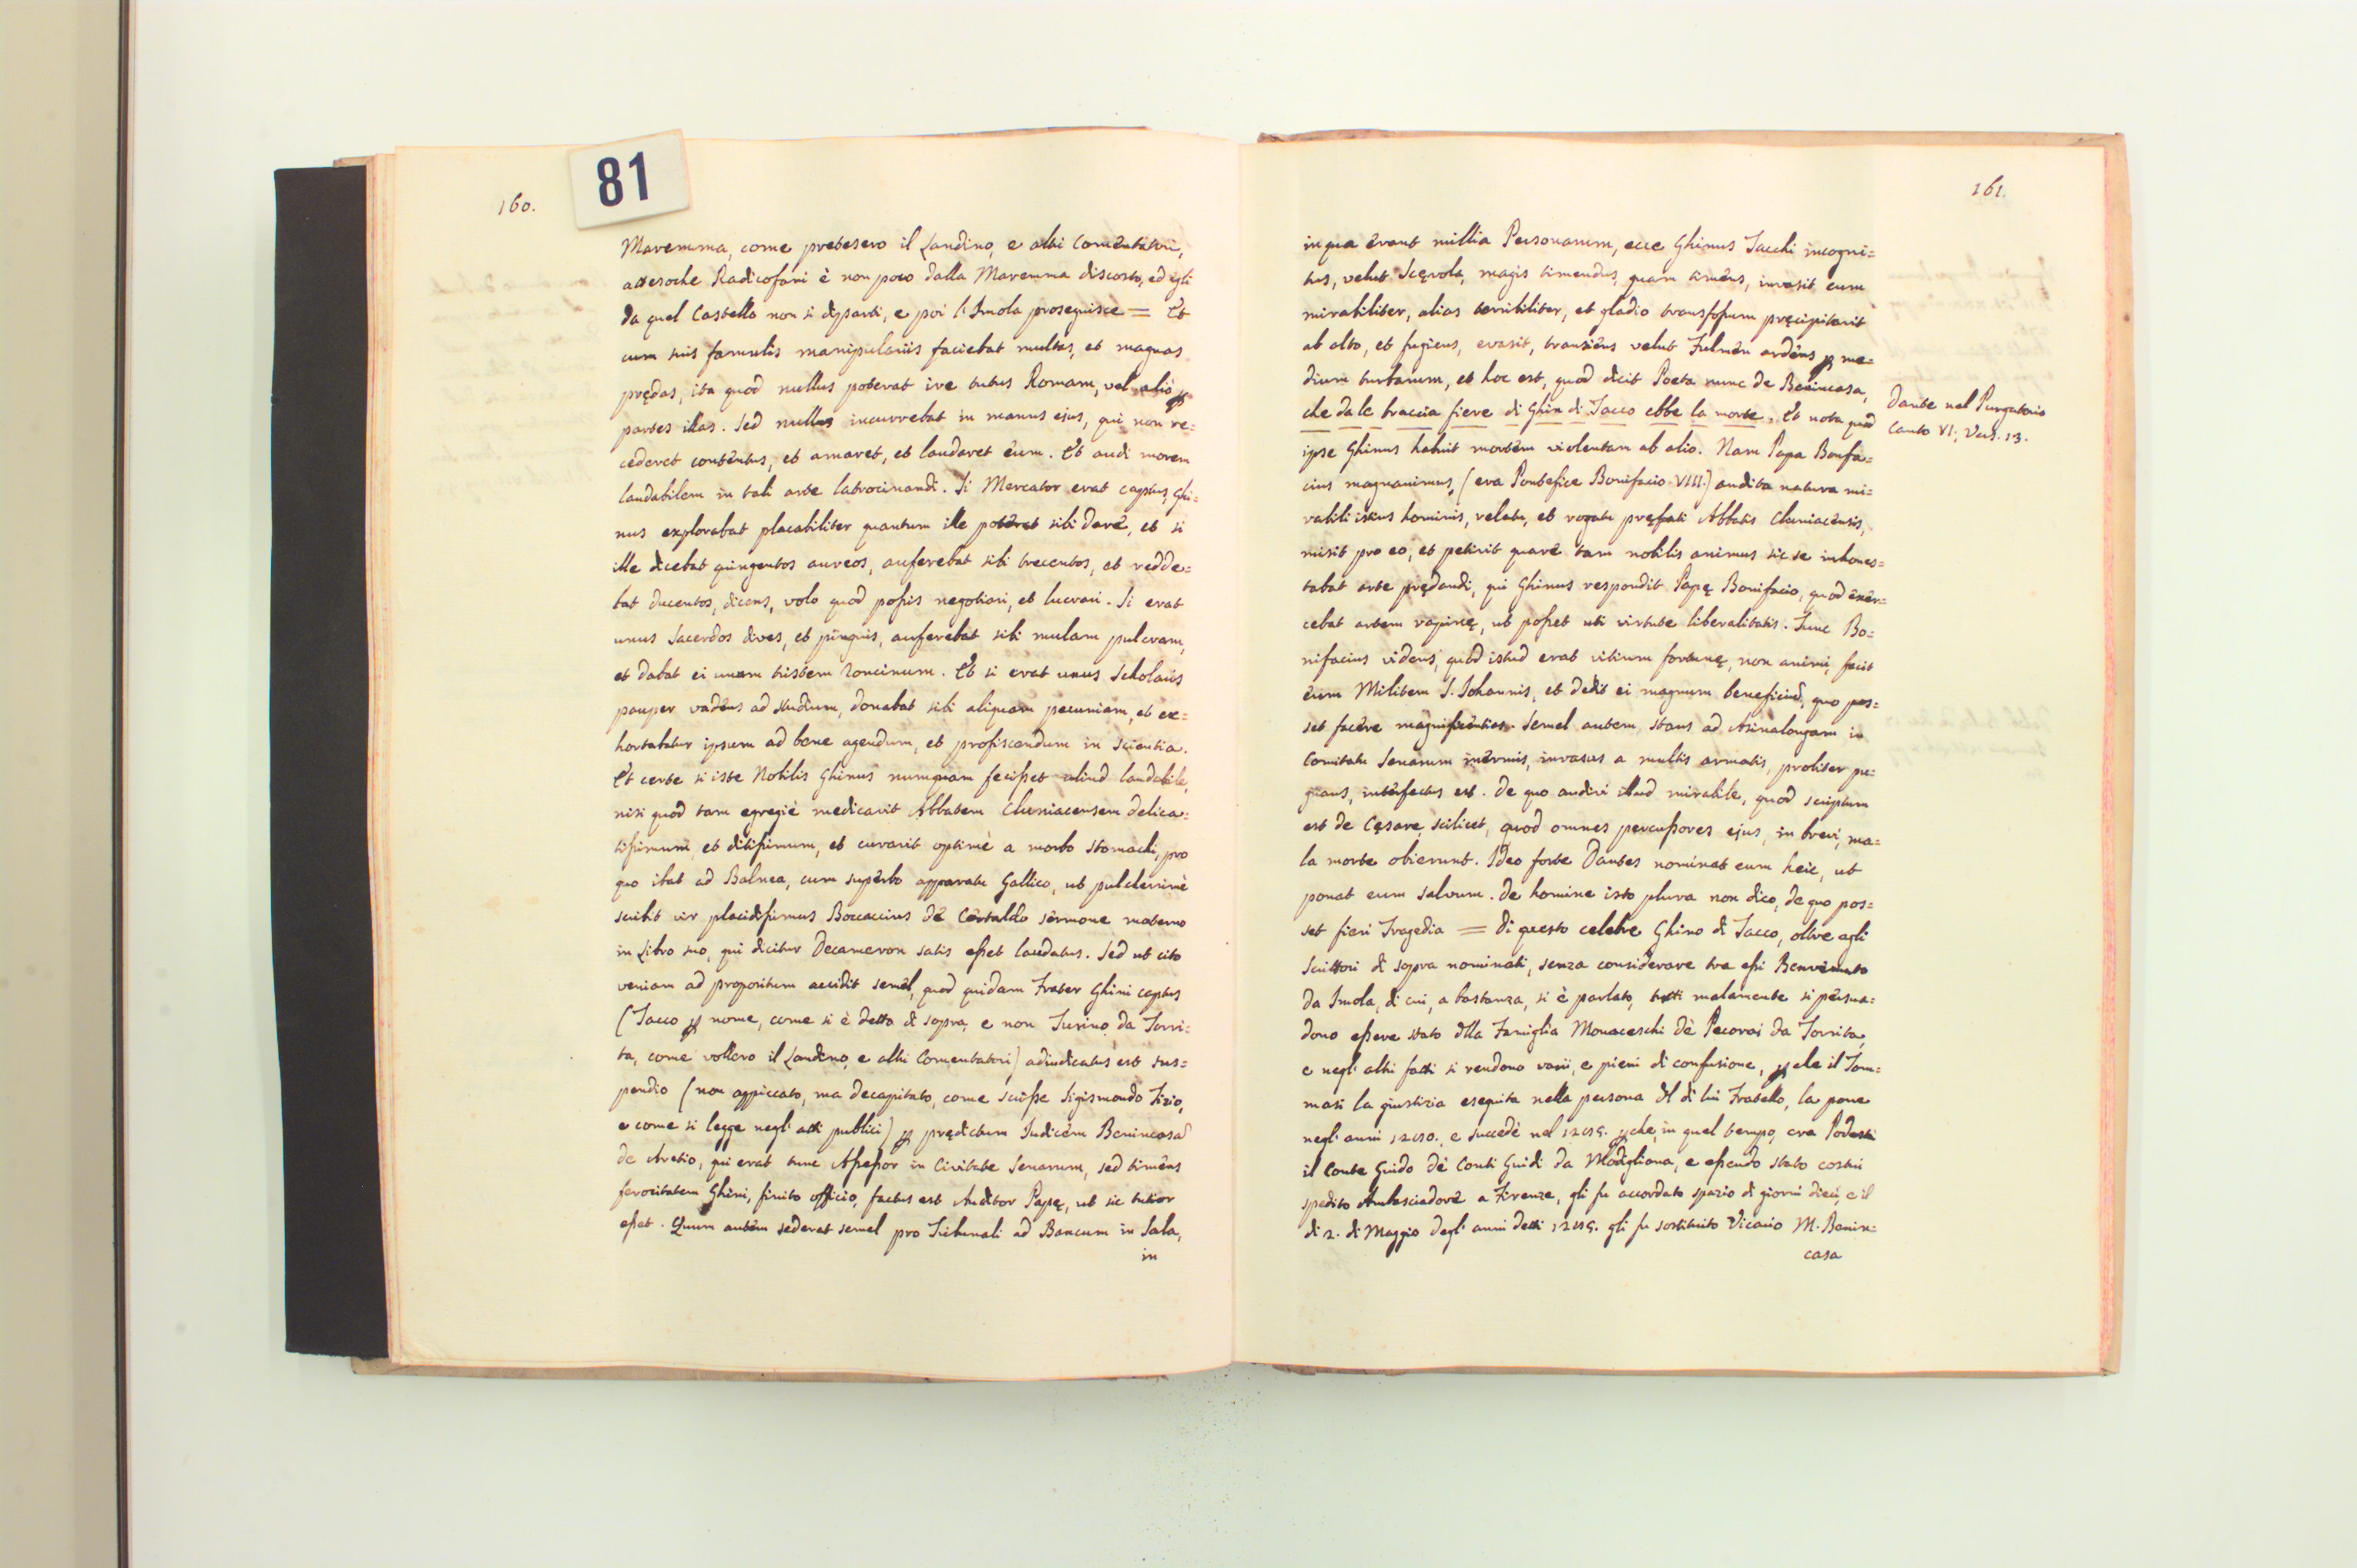 160.
81
Maremma, come pretesero il Landino, e altri Comentatori,
attesoche Radicofani è non poco dalla Maremma discosto, ed egli
da quel Castello non si dipartì, e poi l'Imola proseguisce = Et
cum suis famulis manipulariis faciebat multas, et magnas
prędas, ita quod nullus poterat ire tutus Romam, vel aliò ꝑ
partes illas. Sed nullus incurrebat in manus ejus, qui non re=
cederet contentus, et amaret, et laudaret eum. Et audi morem
laudabilem in tali arte latrocinandi. Si Mercator erat captus, Ghi=
nus explorabat placabiliter quantum ille poterat sibi dare, et si
ille dicebat quingentos aureos, auferebat sibi trecentos, et redde=
bat ducentos, dicens, volo quod possis negotiari, et lucrari. Si erat
unus Sacerdos dives, et pinguis, auferebat sibi mulam pulcram,
et dabat ei unum tristem Roncinum. Et si erat unus Scholaris
pauper vadens ad studium, donabat sibi aliquam pecuniam, et ex=
hortabatur ipsum ad bene agendum, et profiscendum in scientia.
Et certe si iste Nobilis Ghinus numquam fecisset aliud laudabile,
nisi quod tam egregiè medicavit Abbatem Cluniacensem delica=
tissimum, et ditissimum, et curavit optimè a morbo stomachi, pro
quo ibat ad Balnea, cum superbo apparatu Gallico, ut pulcherrimè
scribit vir placidissimus Boccaccius de Certaldo sermone materno
in Libro suo, qui dicitur Decameron satis esset laudatus. Sed ut cito
veniam ad propositum accidit semel, quod quidam Frater Ghini captus
(Tacco ꝑ nome, come si è detto di sopra, e non Turino da Torri=
ta, come vollero il Landino, e altri Comentatori) adiudicatus est sus=
pendio (non appiccato, ma decapitato, come scrisse Sigismondo Tizio,
e come si legge negl'atti publici) ꝑ prędictum Iudicem Benincasa
de Aretio, qui erat tunc Assessor in Civitate Senarum, sed timens
ferocitatem Ghini, finito officio, factus est Auditor Papę, ut sic tutior
esset. Quum autem sederet semel pro Tribunali ad Bancum in Sala,
in
161.
in qua erant millia Personarum, ecce Ghinus Tacchi incogni=
tus, velut Scęvola, magis timendus, quam timens, invasit eum
mirabiliter, alias terribiliter, et gladio transfossum pręcipitavit
ab alto, et fugiens, evasit, transiens velut Fulmen ardens ꝑ me=
dium turbarum, et hoc est, quod dicit Poeta nunc de Benincasa,
che da le braccia fiere di Ghin di Tacco ebbe la morte. Et nota quod
Dante nel Purgatorio
Canto VI, Vers. 13.
ipse Ghinus habuit mortem violentam ab alio. Nam Papa Bonifa=
cius magnanimus, (era Pontefice Bonifacio VIII.) audita natura mi=
rabili istius hominis, relatu, et rogatu pręfati Abbatis Cluniacensis,
misit pro eo, et petivit quare tam nobilis animus sic se inhones=
tabat arte prędandi, qui Ghinus respondit Papę Bonifacio, quod exer=
cebat artem rapinę, ut posset uti virtute liberalitatis. Tunc Bo=
nifacius videns, quod istud erat vitium fortunę, non animi, fecit
eum Militem S. Iohannis, et dedit ei magnum beneficium, quo pos=
set facere magnificentias. Semel autem stans ad Asinalongam in
Comitatu Senarum inermis, invasus a multis armatis, probiter pu=
gnans, interfectus est. De quo audivi illud mirabile, quod scriptum
est de Cęsare, scilicet, quod omnes percussores ejus, in brevi, ma=
la morte obierunt. Ideo forte Dantes nominat eum heic, ut
ponat eum salvum. De homine isto plura non dico, de quo pos=
set fieri Tragedia = Di questo celebre Ghino di Tacco, oltre agli
Scrittori di sopra nominati, senza considerare tra essi Benvenuto
da Imola, di cui, a bastanza, si è parlato, tutti malamente si persua=
dono essere stato della Famiglia Monaceschi de' Pecorai da Torrita,
e negl'altri fatti si rendono varii, e pieni di confusione, ꝑche il Tom=
masi la giustizia eseguita nella persona del di lui Fratello, la pone
negl'anni 1280., e succedè nel 1285. ꝑche, in quel tempo, era Podestà
il Conte Guido de' Conti Guidi da Modigliana, e essendo stato costui
spedito Ambasciadore a Firenze, gli fu accordato spazio di giorni dieci, e il
di 2. di Maggio degl'anni detti 1285. gli fu sostituito Vicario M. Benin=
casa